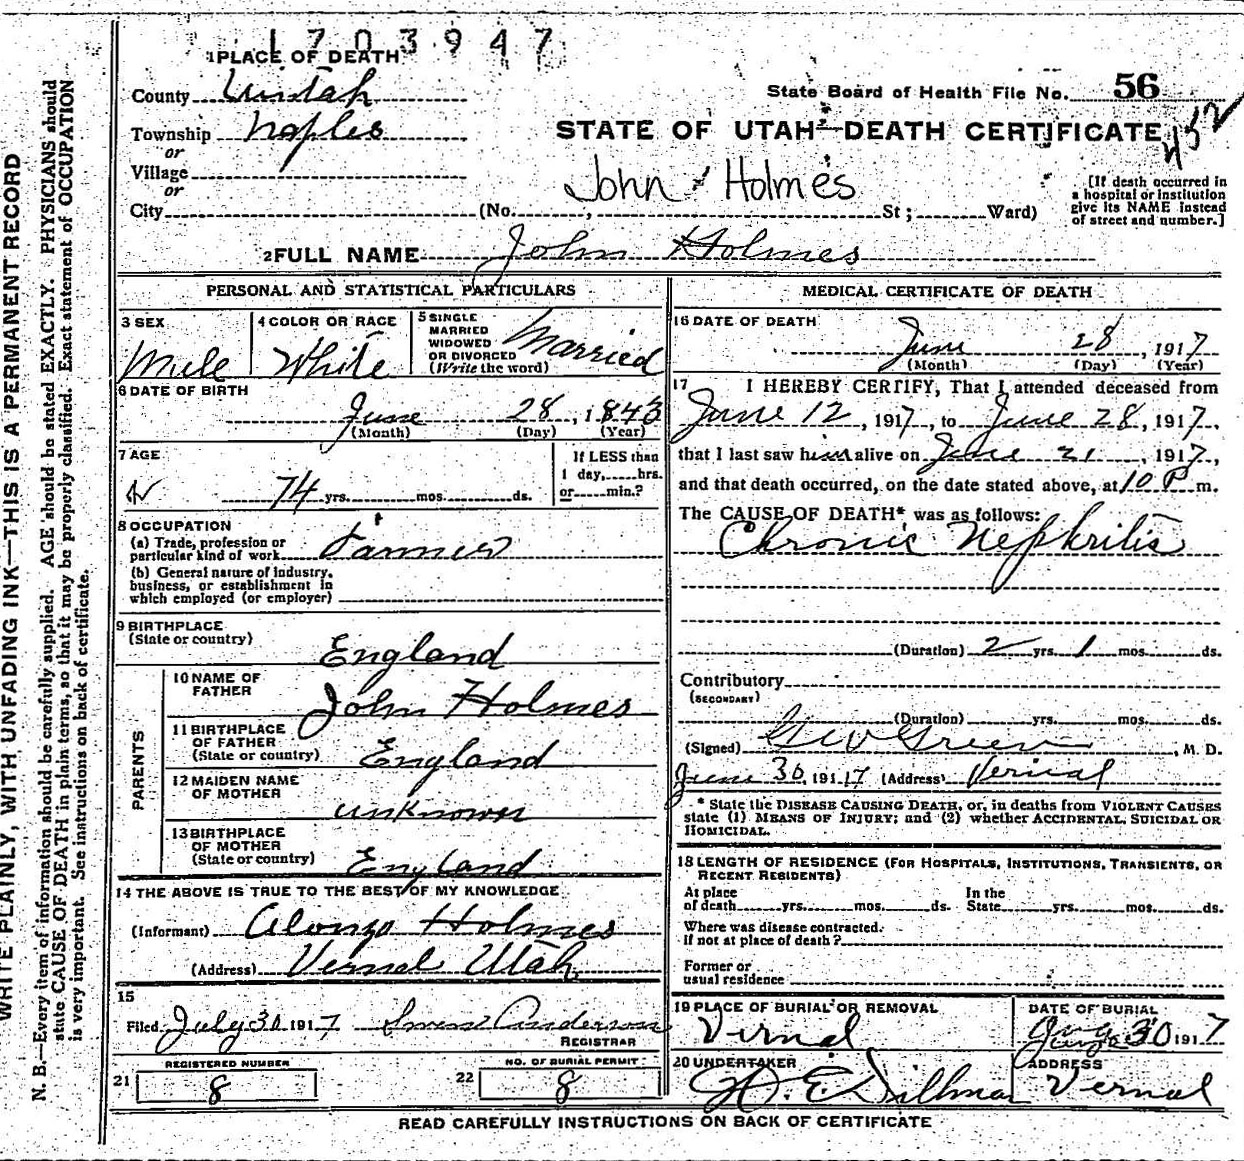 1703947
1 PLACE OF DEATH
County Uintah
Township Naples
or
Village
or
City
State Board of Health File No. 56
452
STATE OF UTAH—DEATH CERTIFICATE
John Holmes
(No. , St ; Ward)
[If death occurred in
a hospital or institution
give its NAME instead
of street and number.]
2 FULL NAME John Holmes
PERSONAL AND STATISTICAL PARTICULARS
3 SEX
Male
4 COLOR OR RACE
White
5 SINGLE
MARRIED
WIDOWED
OR DIVORCED
(Write the word)
Married
6 DATE OF BIRTH
June 28, 1843
(Month) (Day) (Year)
7 AGE
74 yrs. mos. ds.
If LESS than
1 day, hrs.
or min.?
8 OCCUPATION
(a) Trade, profession or
particular kind of work Farmer
(b) General nature of industry,
business, or establishment in
which employed (or employer)
9 BIRTHPLACE
(State or country)
England
PARENTS
10 NAME OF
FATHER
John Holmes
11 BIRTHPLACE
OF FATHER
(State or country)
England
12 MAIDEN NAME
OF MOTHER
unknown
13 BIRTHPLACE
OF MOTHER
(State or country)
England
14 THE ABOVE IS TRUE TO THE BEST OF MY KNOWLEDGE
(Informant) Alonzo Holmes
(Address) Vernal Utah
15
Filed July 30 1917 Anderson
REGISTRAR
REGISTERED NUMBER
21 8
NO. OF BURIAL PERMIT
22 8
MEDICAL CERTIFICATE OF DEATH
16 DATE OF DEATH
June 28, 1917
(Month) (Day) (Year)
17 I HEREBY CERTIFY, That I attended deceased from
June 12, 1917, to June 28, 1917,
that I last saw him alive on June 21, 1917,
and that death occurred, on the date stated above, at 10 P m.
The CAUSE OF DEATH* was as follows:
Chronic Nephritis
(Duration) 2 yrs. 1 mos. ds.
Contributory
(SECONDARY)
(Duration) yrs. mos. ds.
(Signed) Green, M. D.
June 30, 1917 (Address) Vernal
* State the DISEASE CAUSING DEATH, or, in deaths from VIOLENT CAUSES
state (1) MEANS OF INJURY; and (2) whether ACCIDENTAL, SUICIDAL OR
HOMICIDAL.
18 LENGTH OF RESIDENCE (FOR HOSPITALS, INSTITUTIONS, TRANSIENTS, OR
RECENT RESIDENTS)
At place
of death yrs. mos. ds.
In the
State yrs. mos. ds.
Where was disease contracted.
if not at place of death?
Former or
usual residence
19 PLACE OF BURIAL OR REMOVAL
Vernal
DATE OF BURIAL
30 1917
20 UNDERTAKER
E Dillman
ADDRESS
Vernal
READ CAREFULLY INSTRUCTIONS ON BACK OF CERTIFICATE
WRITE PLAINLY, WITH UNFADING INK—THIS IS A PERMANENT RECORD
N. B.—Every item of information should be carefully supplied. AGE should be stated EXACTLY. PHYSICIANS should
state CAUSE OF DEATH in plain terms, so that it may be properly classified. Exact statement of OCCUPATION
is very important. See instructions on back of certificate.